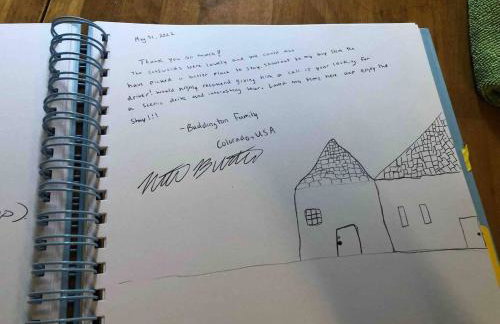 May 31, 2022
Thank you so much!
The                     were lovely and we could not
have picked a better place to stay. Shoutout to my boy        the
driver! Would highly recommend giving him a call if your looking for
a scenic drive and interesting tour. Loved my time here and enjoy the
stay!!!
-Buddington Family
Colorado, USA